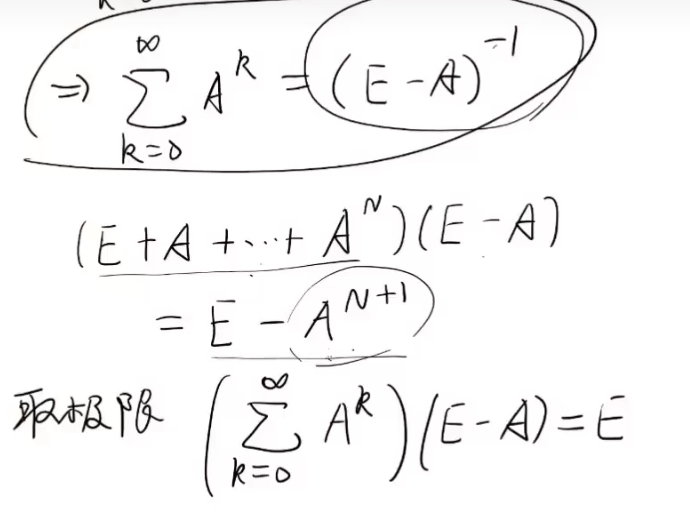 ⇒ ∑_{k=0}^{∞} A^k = (E - A)^{-1}
(E + A + ⋯ + A^N)(E - A)
= E - A^{N+1}
取极限 (∑_{k=0}^{∞} A^k)(E - A) = E